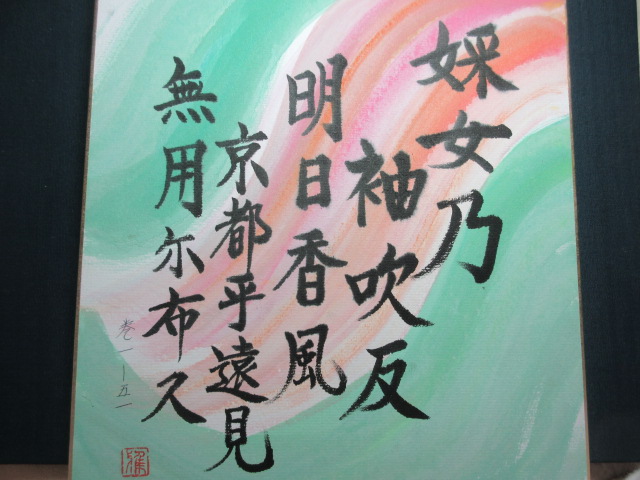 婇女乃
袖吹反
明日香風
京都乎遠見
無用尓布久
巻一ー五一
雅